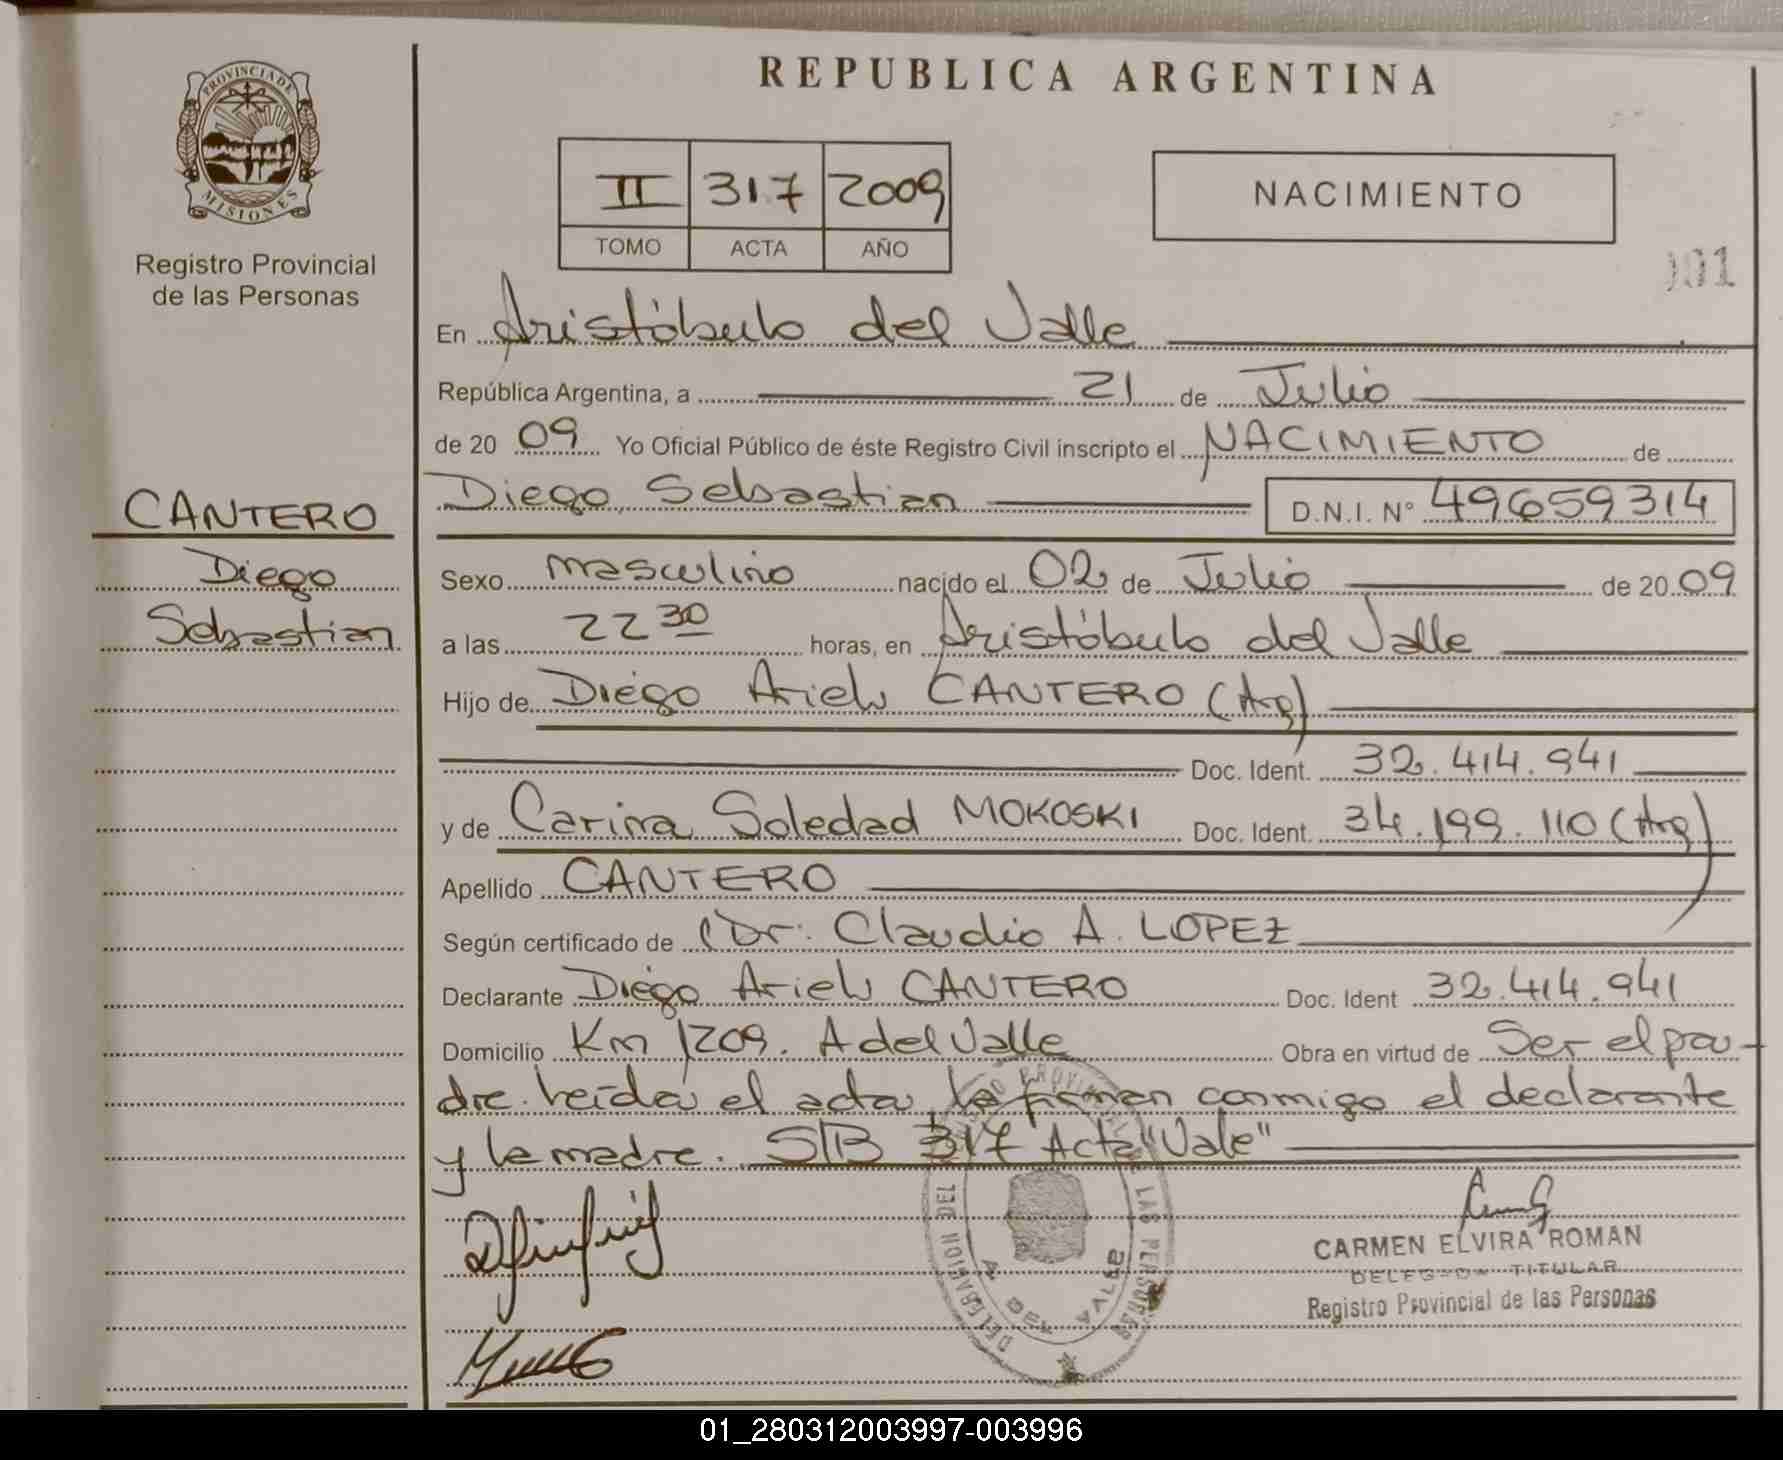 REPUBLICA ARGENTINA
PROVINCIA DE
MISIONES
Registro Provincial
de las Personas
II 317 2009
TOMO ACTA AÑO
NACIMIENTO
101
En Aristóbulo del Valle
República Argentina, a 21 de Julio
de 20 09 Yo Oficial Público de éste Registro Civil inscripto el NACIMIENTO de
Diego Sebastian D.N.I. Nº 49659314
CANTERO
Diego
Sebastian
Sexo masculino nacido el 02 de Julio de 20 09
a las 22 30 horas, en Aristóbulo del Valle
Hijo de Diego Ariel CANTERO (Arg)
Doc. Ident. 32.414.941
y de Carina Soledad MOKOSKI Doc. Ident. 34.199.110 (Arg)
Apellido CANTERO
Según certificado de Dr. Claudio A. LOPEZ
Declarante Diego Ariel CANTERO Doc. Ident 32.414.941
Domicilio Km 1209. A del Valle Obra en virtud de Ser el pa-
dre. leída el acta, la firman conmigo el declarante
y la madre. S/B 317 Acta "Vale"
CARMEN ELVIRA ROMAN
DELEGADA TITULAR
Registro Provincial de las Personas
DELEGACION DEL REGISTRO PROVINCIAL DE LAS PERSONAS
A. DEL VALLE
01_280312003997-003996